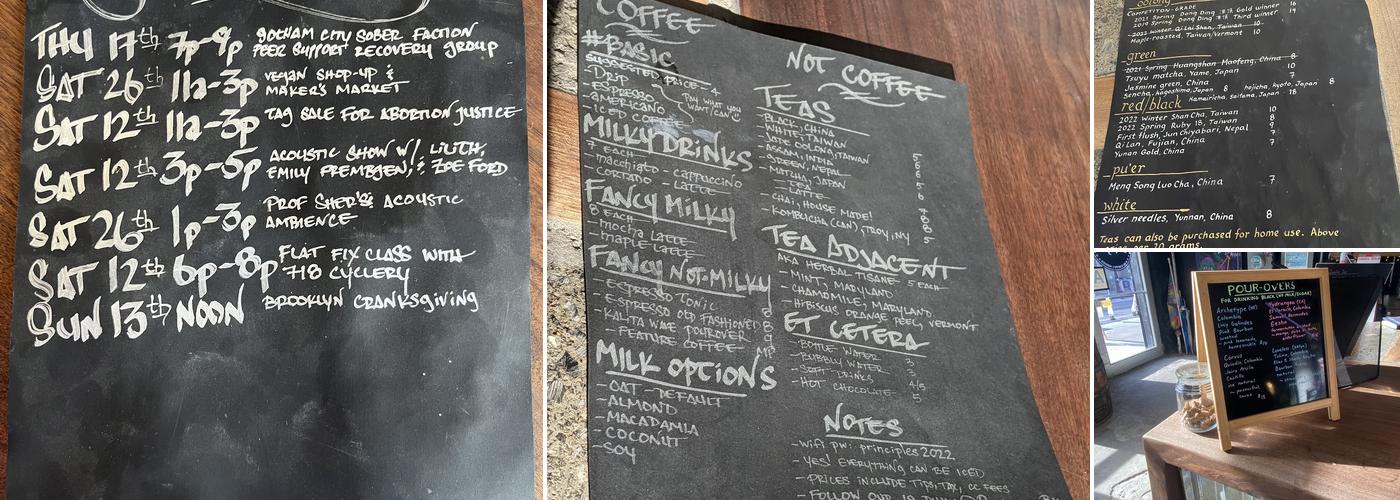 THU 17th 7p-9p GOTHAM CITY SOBER FACTION
PEER SUPPORT RECOVERY GROUP
SAT 26th 11a-3p VEGAN SHOP-UP &
MAKER'S MARKET
SAT 12th 11a-3p TAG SALE FOR ABORTION JUSTICE
SAT 12th 3p-5p ACOUSTIC SHOW W/ LILITH,
EMILY FREMBGEN, & ZOE FORD
SAT 26th 1p-3p PROF SHER'S ACOUSTIC
AMBIENCE
SAT 12th 6p-8p FLAT FIX CLASS WITH
718 CYCLERY
SUN 13th NOON BROOKLYN CRANKSGIVING
COFFEE
#BASIC
SUGGESTED PRICE - 4
- DRIP
- ESPRESSO
- AMERICANO
- ICED COFFEE
PAY WHAT YOU
WANT/CAN
MILKY DRINKS
7 EACH
- macchiato - cappuccino
- CORTADO - LATTE
FANCY MILKY
8 EACH
- mocha LATTE
- maple LATTE
FANCY NOT-MILKY
- ESPRESSO TONIC
- ESPRESSO OLD FASHIONED 8
- KALITA WAVE POUROVER
- FEATURE COFFEE MP
MILK OPTIONS
- OAT - DEFAULT
- ALMOND
- MACADAMIA
- COCONUT
- SOY
NOT COFFEE
TEAS
- BLACK, CHINA
- WHITE, TAIWAN
- JADE OOLONG, TAIWAN 5
- ASSAM, INDIA 6
- GREEN, NEPAL 6
- MATCHA, JAPAN 5
- TEA 6
- LATTE
- CHAI, HOUSE MADE!
- KOMBUCHA (CAN), TROY, NY
TEA ADJACENT
AKA HERBAL TISANE 5 EACH
- MINT, MARYLAND
- CHAMOMILE, MARYLAND
- HIBISCUS ORANGE PEEL, VERMONT
ET CETERA
- BOTTLE WATER 3
- BUBBLY WATER 3
- SOFT DRINKS 4/5
- HOT CHOCOLATE 5
NOTES
- wifi pw: principles2022
- YES! EVERYTHING CAN BE ICED
- PRICES INCLUDE TIPS, TAX, CC FEES
- FOLLOW OUR IG
oolong
COMPETITION-GRADE
2021 Spring Dong Ding Gold winner 16
2019 Spring Dong Ding Third winner 14
2022 Winter Qi Lai Shan, Taiwan 10
Maple-roasted, Taiwan/Vermont 10
green
2021 Spring Huangshan Maofeng, China 8
Tsuyu matcha, Yame, Japan 10
Jasmine green, China 7
Sencha, Kagoshima, Japan 8 hojicha, kyoto, Japan 8
Kamairicha, Saitama, Japan 18
red/black
2022 Winter Shan Cha, Taiwan 10
2022 Spring Ruby 18, Taiwan 8
First flush, Jun Chiyabari, Nepal 9
Qi Lan, Fujian, China 7
Yunan Gold, China 7
pu'er
Meng Song Luo Cha, China 7
white
Silver needles, Yunnan, China 8
Teas can also be purchased for home use. Above
per 20 grams.
POUR-OVERS
FOR DRINKING BLACK (NO MILK/SUGAR)
Archetype
Colombia
Lucy Galindez
Pink Bourbon
washed
- pink lemonade,
honeysuckle
Corvus
Quindio, Colombia
Jairo Arcila
Castillo
natural
- passionfruit,
Hydrangea (CA)
El Paraiso, Colombia
Samuel Bermudez
Gesha
Tolima, Colombia
Bourbon
natural